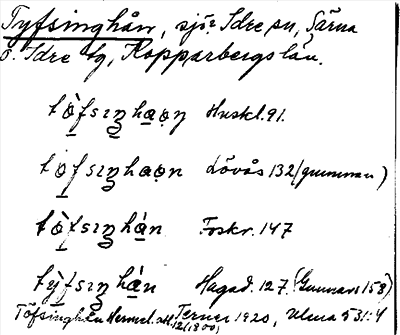 Tyfsinghån, sjö: Idre sn, Särna
o. Idre tg, Kopparbergs län.
tö̀fsıŋhaǫn Huskl. 91.
tö̀fsıŋhaǫn Lövås 132 (gumman)
tö̀fsıŋhán Foskr. 147
tỳfsıŋhán Hagad. 127. (Gunnars 158)
Töfsinghån Hermel. 12 (1800) Terner 1920, Ulena 531:4